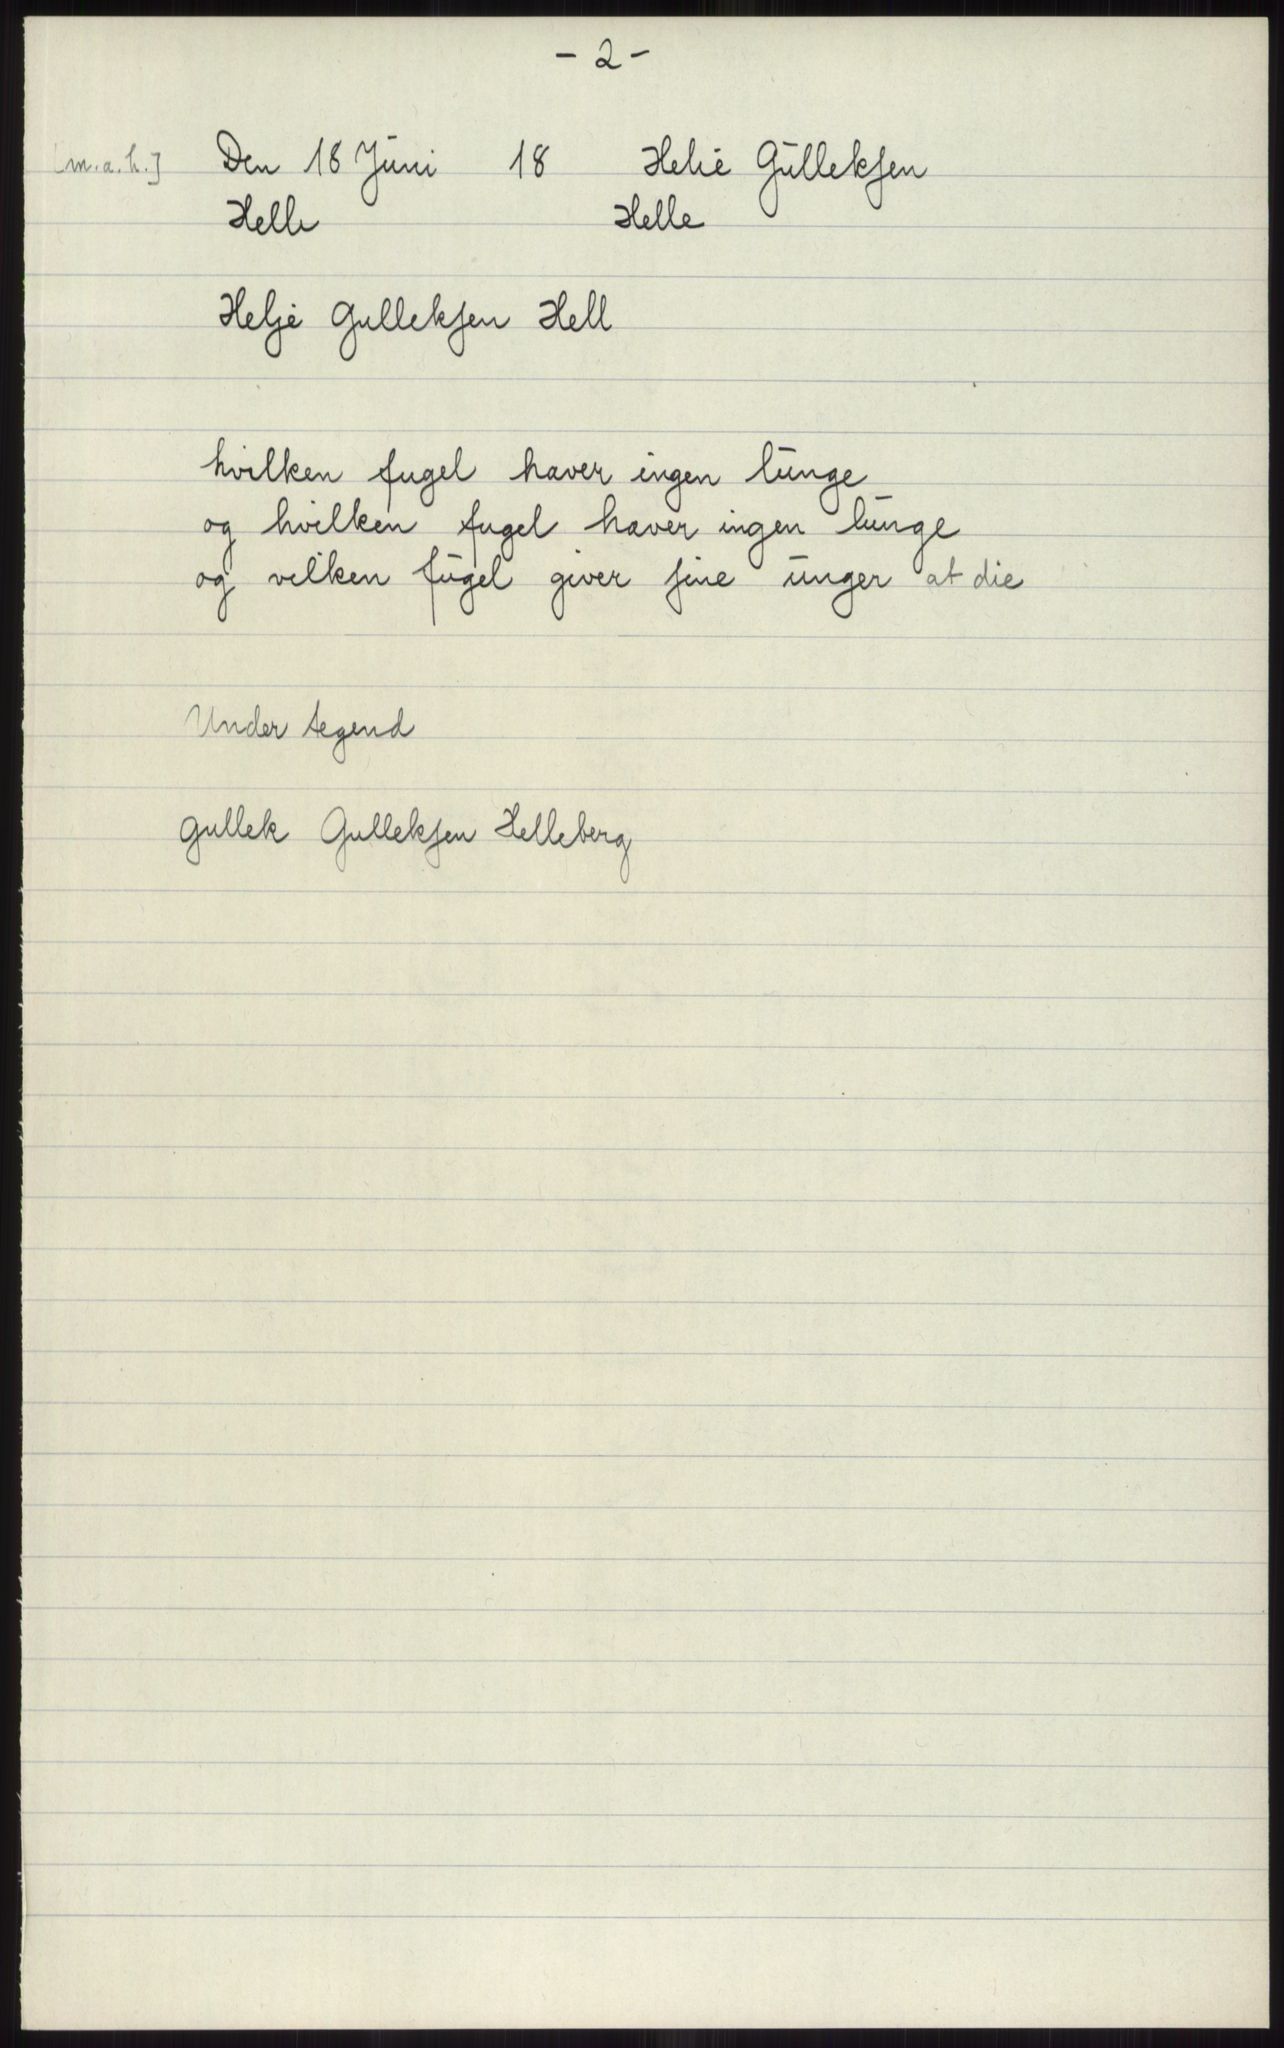 - 2 -
[m.a.h.] Den 18 Juni 18 Helie Gulleksen
Helle Helle
Helje Gulleksen Hell
hvilken fugel haver ingen lunge
og hvilken fugel haver ingen lunge
og vilken fugel giver sine unger at die
Under tegend
gullek Gulleksen Helleberg